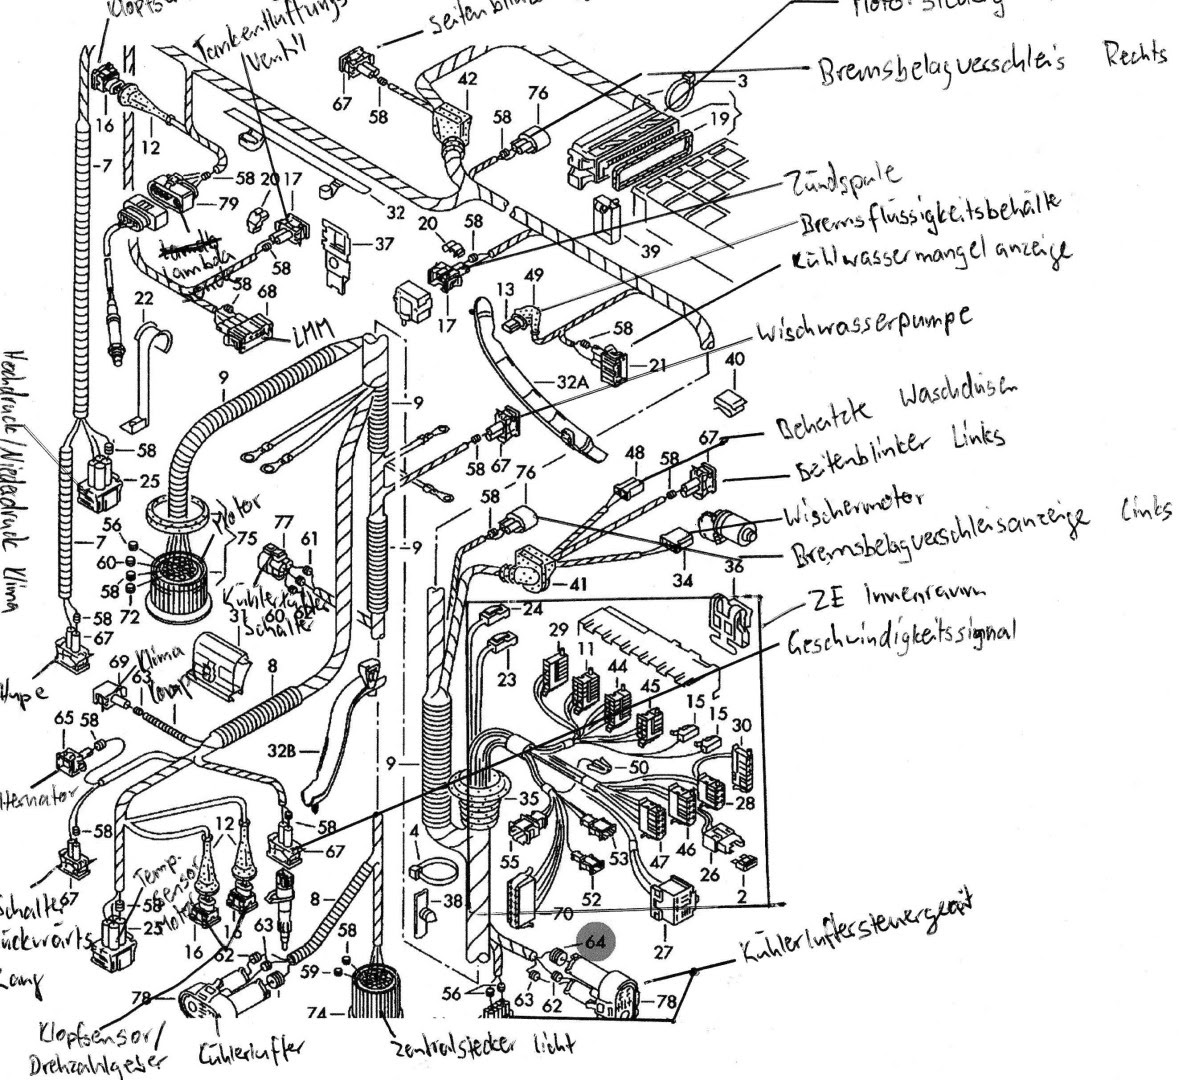 Klopfsens
Tankentlüftungs
Ventil
Seitenblin
Motor. Steuerg
Bremsbelagverschleis Rechts
67
58
42
58
76
3
19
16
12
7
58
79
20
17
32
37
58
20
58
39
Zündspule
Bremsflüssigkeitsbehälte
Kühlwassermangelanzeige
Lambda
22
58
68
LMM
17
13
49
58
21
32A
40
Wischwasserpumpe
Hochdruck/Niederdruck Klima
9
9
58
25
58
67
76
58
48
58
67
Beheizte Waschdüsen
Seitenblinker Links
Wischermotor
Bremsbelagverschleisanzeige Links
7
56
60
58
72
Motor
75
77
61
60
9
41
34
36
Kühlerlüfter
Schalter
31
ZE Innenraum
Geschwindigkeitssignal
58
67
Hupe
69
63
Klima
Komp
8
65
58
lternator
32B
24
23
29
11
44
45
15
15
30
9
50
28
35
55
53
47
46
26
2
52
70
27
58
67
12
58
67
4
38
Schalter
ückwärts
Gang
58
25
Temp.
Sensor
Motor
16
16
62
63
8
58
59
64
63
62
78
Kühlerlüftersteuergerät
56
78
74
Klopfsensor/
Drehzahlgeber
Kühlerlüfter
Zentralstecker Licht